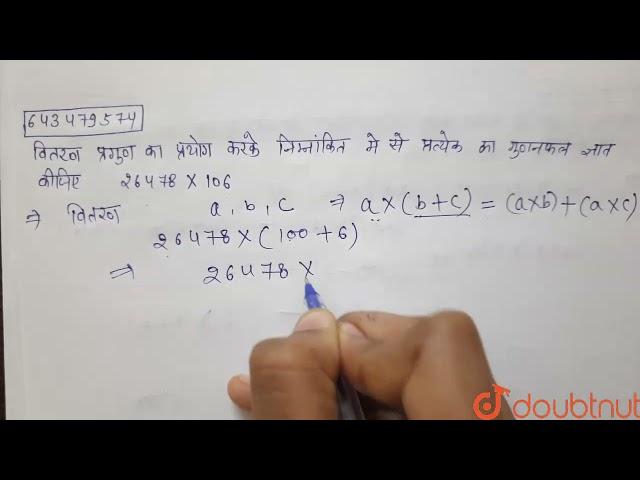 643479574
वितरण प्रगुण का प्रयोग करके निम्नांकित मे से प्रत्येक का गुणनफल ज्ञात
कीजिए 26478 X 106
⇒ वितरण a, b, c ⇒ a X (b + c) = (a x b) + (a x c)
26478 X (100 + 6)
⇒ 26478 X
doubtnut